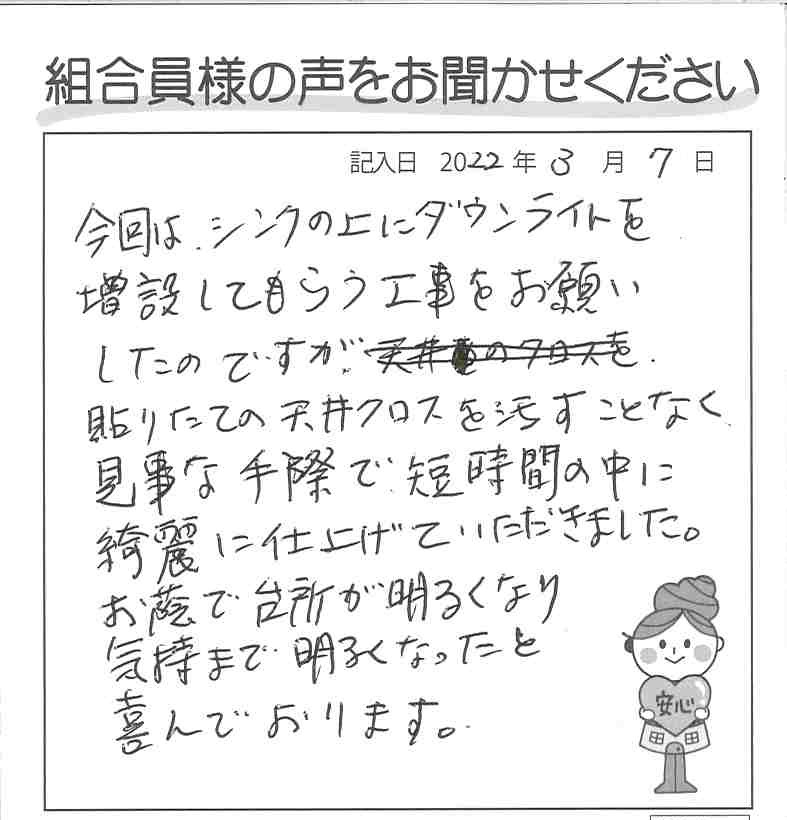 組合員様の声をお聞かせください
記入日 2022年 3月 7日
今回は、シンクの上にダウンライトを
増設してもらう工事をお願い
したのですが、天井のクロスを
貼りたての天井クロスを汚すことなく
見事な手際で、短時間の中に
綺麗に仕上げていただきました。
お蔭で台所が明るくなり
気持まで明るくなったと
喜んでおります。
安心